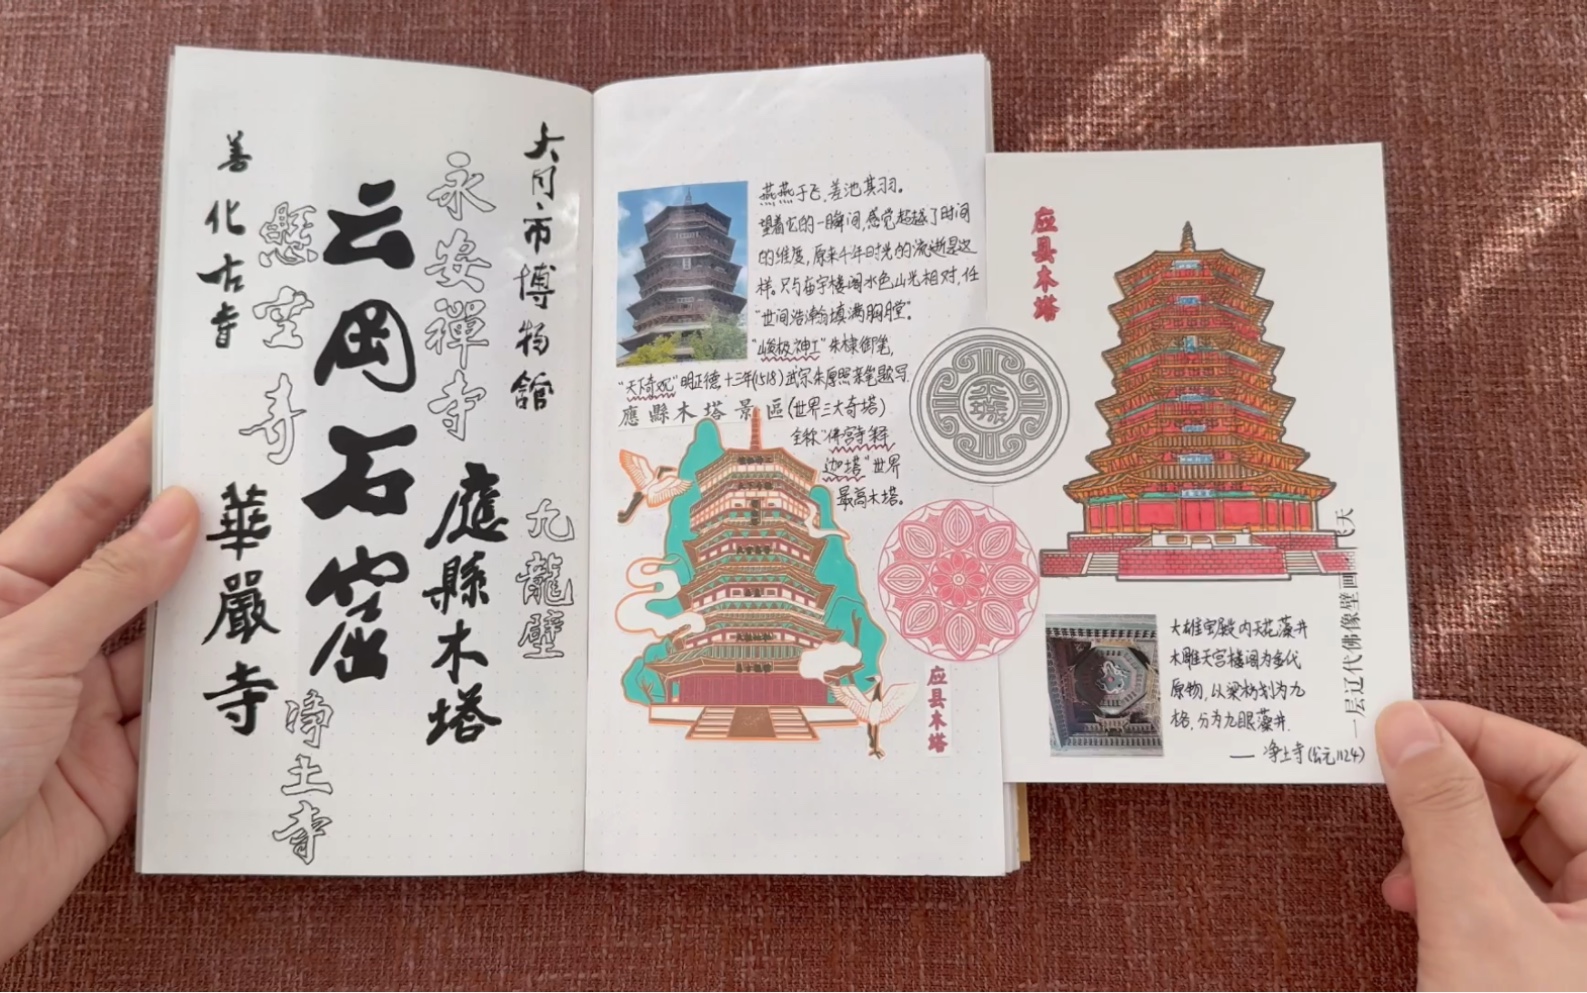 大同市博物館
永安禪寺
九龍壁
應縣木塔
云岡石窟
懸空寺
淨土寺
善化古寺
華嚴寺
燕燕于飞,差池其羽。
望着它的一瞬间,感觉超越了时间
的维度,原来千年时光的流逝是这
样。只与庙宇楼阁水色山光相对,任
"世间浩瀚填满胸膛"。
"峻极神工"朱棣御笔,
"天下奇观"明正德十三年(1518)武宗朱厚照亲笔题写.
應縣木塔景區(世界三大奇塔)
全称"佛宫寺释
迦塔"世界
最高木塔。
应县木塔
应县木塔
大雄宝殿内天花藻井
木雕天宫楼阁为金代
原物,以梁枋划为九
格,分为九眼藻井.
——净土寺(公元1124)
一层辽代佛像壁画
天